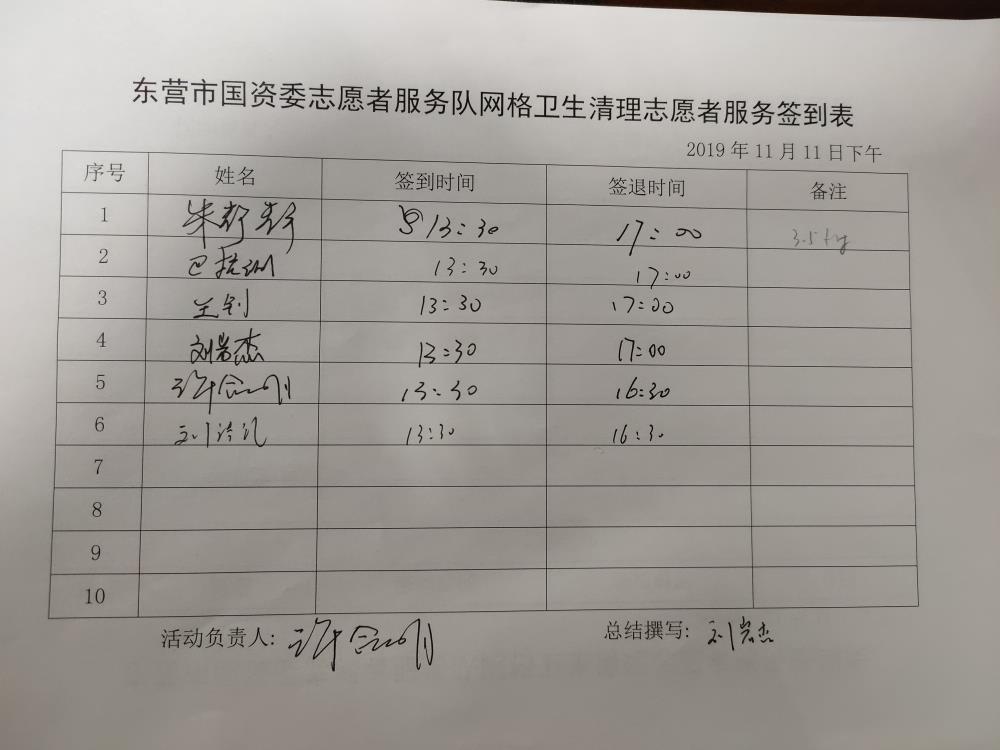 东营市国资委志愿者服务队网格卫生清理志愿者服务签到表
2019 年 11 月 11 日下午
序号 姓名 签到时间 签退时间 备注
1 朱 13:30 17:00 3.5
2 巴 13:30 17:00
3 王钊 13:30 17:00
4 刘岩杰 13:30 17:00
5 许 13:30 16:30
6 刘 13:30 16:30
7
8
9
10
活动负责人: 许 总结撰写: 刘岩杰